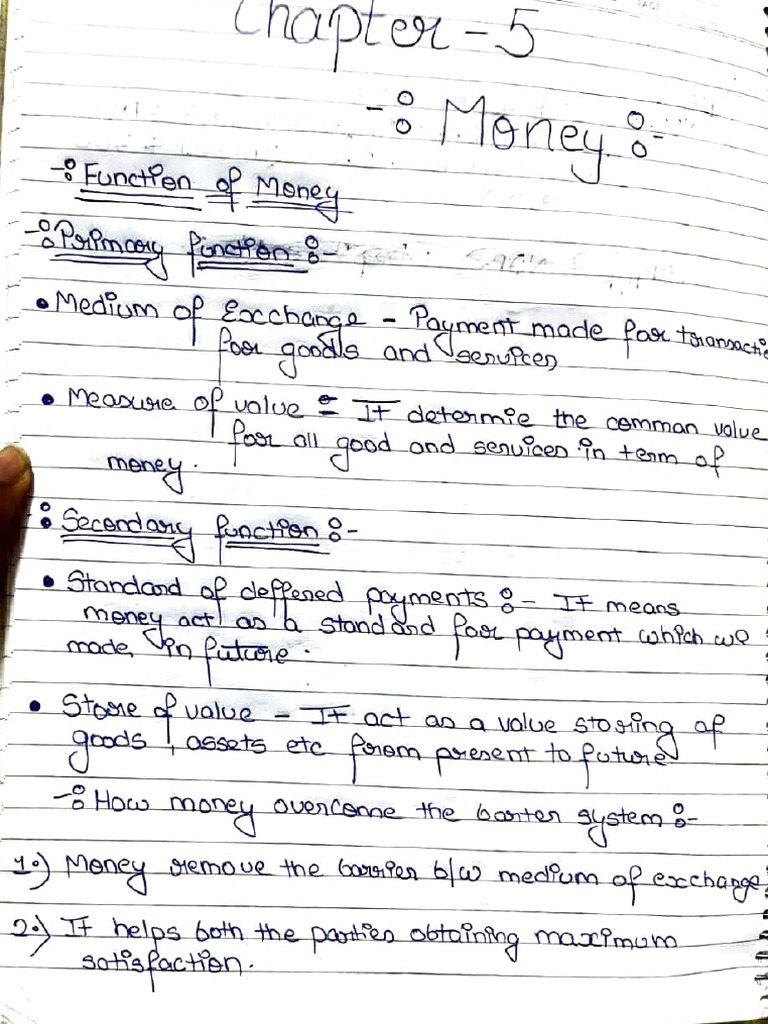 Chapter - 5
-: Money :-
-: Function of Money
-: Primary function :-
• Medium of Excchange - Payment made for transacti
for goods and services
• Measure of value :- It determie the common value
for all good and services in term of
money.
: Secondary function :-
• Standard of deffered payments :- It means
money act as a standard for payment which we
made, in future.
• Store of value - It act as a value storing of
goods, assets etc from present to future
-: How money overcome the barter system :-
1.) Money remove the barrier b/w medium of exchange.
2.) It helps both the parties obtaining maximum
satisfaction.